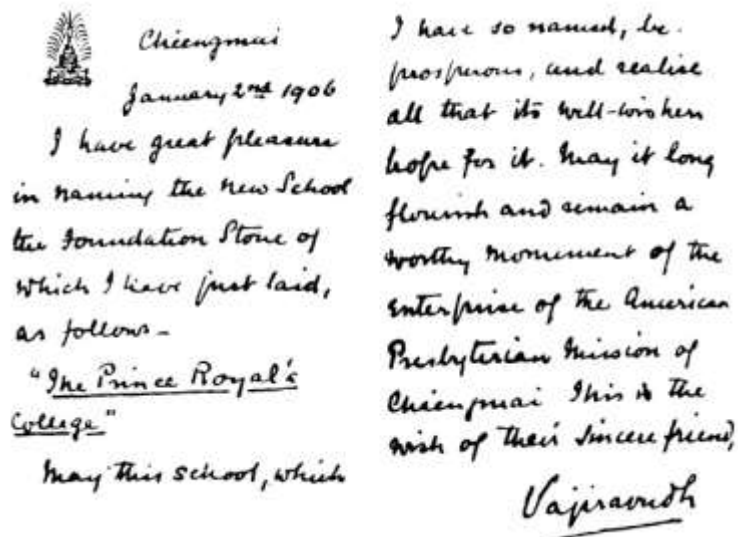 Chiengmai
January 2nd 1906
I have great pleasure
in naming the new School
the Foundation Stone of
which I have just laid,
as follows—
"The Prince Royal's
College"
May this school, which
I have so named, be
prosperous, and realise
all that its well-wishers
hope for it. May it long
flourish and remain a
worthy monument of the
enterprise of the American
Presbyterian Mission of
Chiengmai This is the
wish of their sincere friend,
Vajiravudh